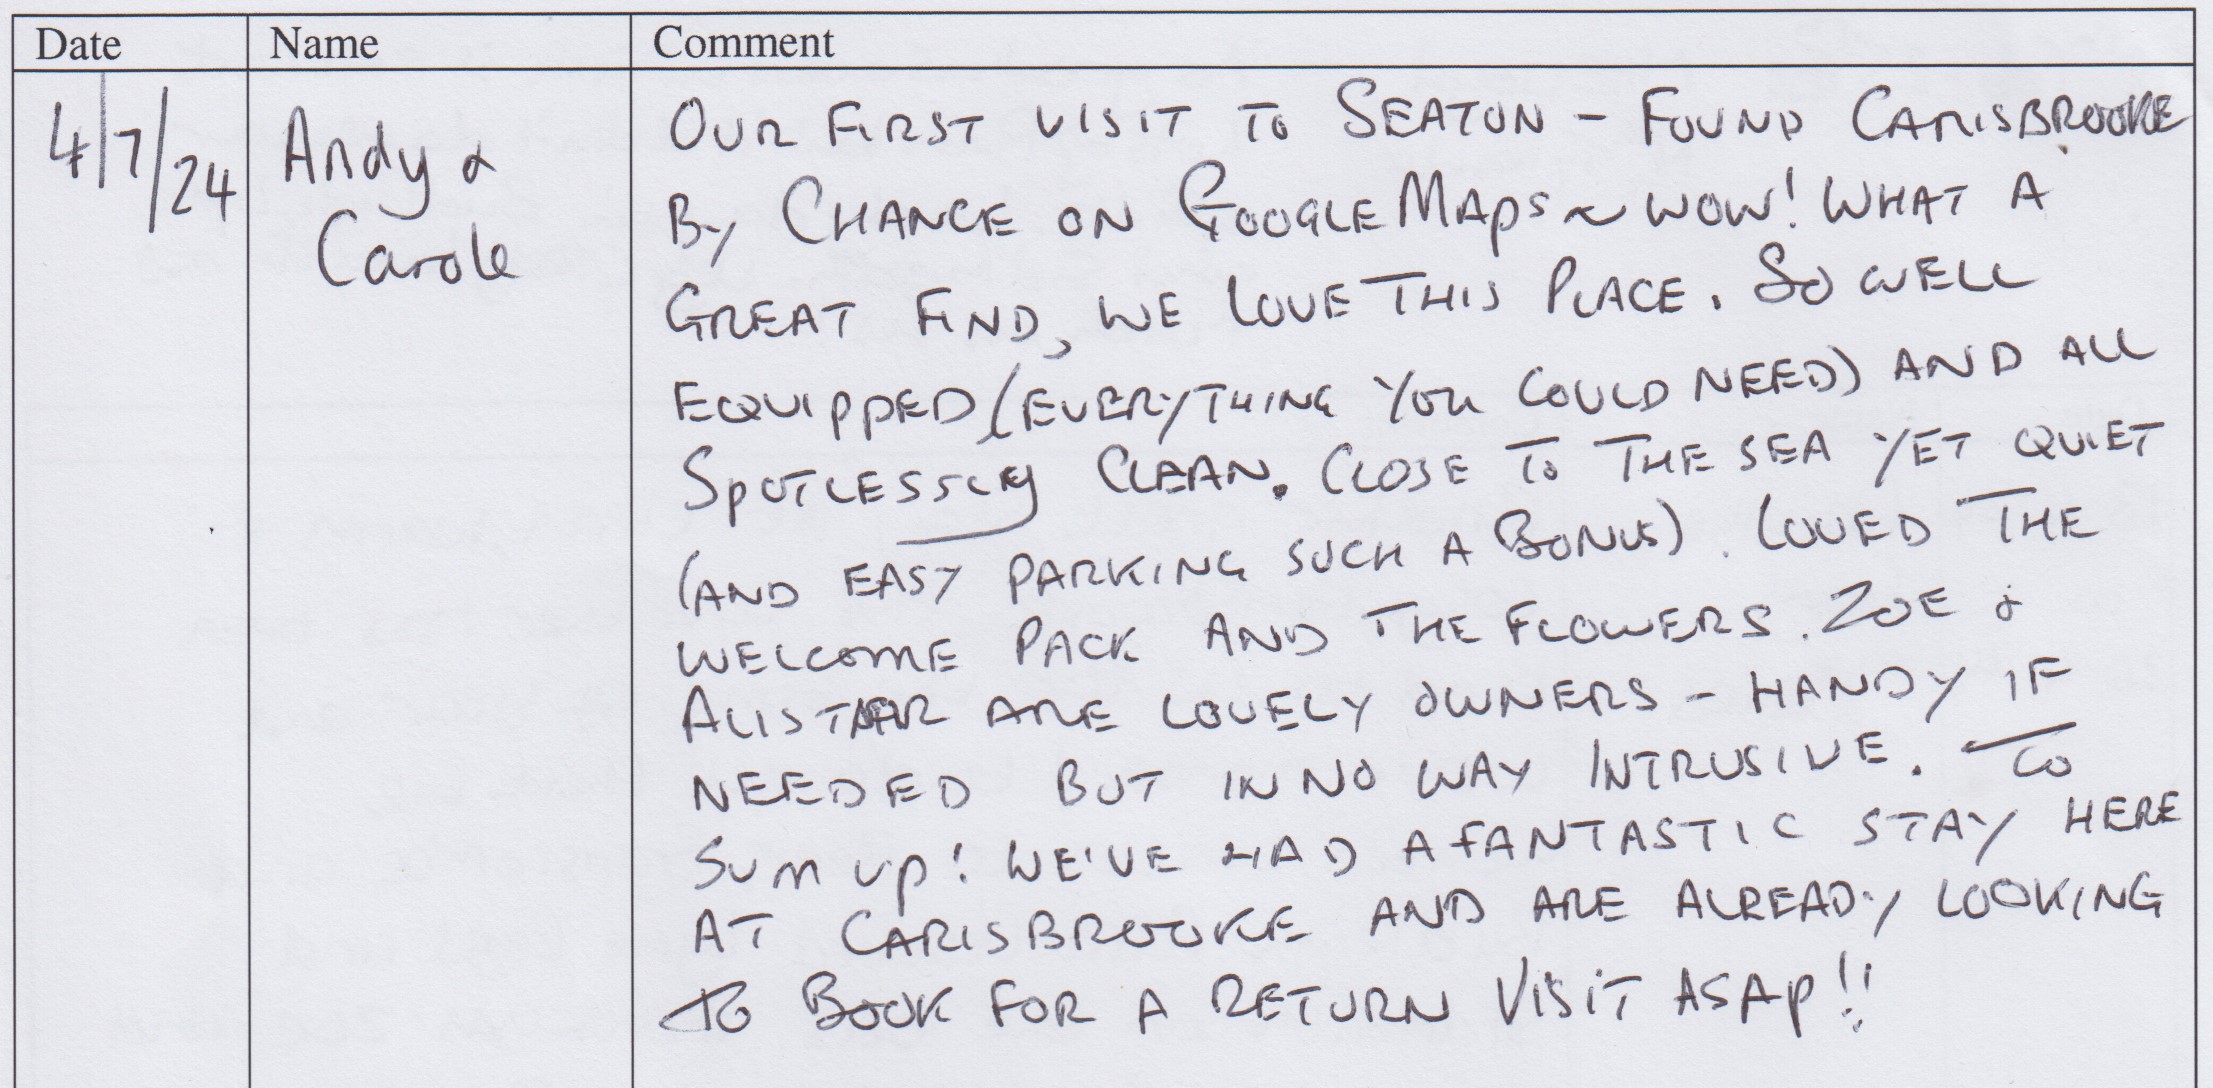 Date Name Comment
4/7/24 Andy & Carole
OUR FIRST VISIT TO SEATON - FOUND CARISBROOKE
BY CHANCE ON GOOGLE MAPS ~ WOW! WHAT A
GREAT FIND, WE LOVE THIS PLACE. SO WELL
EQUIPPED (EVERYTHING YOU COULD NEED) AND ALL
SPOTLESSLY CLEAN. CLOSE TO THE SEA YET QUIET
(AND EASY PARKING SUCH A BONUS). LOVED THE
WELCOME PACK AND THE FLOWERS. ZOE &
ALISTAIR ARE LOVELY OWNERS - HANDY IF
NEEDED BUT IN NO WAY INTRUSIVE. TO
SUM UP! WE'VE HAD A FANTASTIC STAY HERE
AT CARISBROOKE AND ARE ALREADY LOOKING
TO BOOK FOR A RETURN VISIT ASAP!!